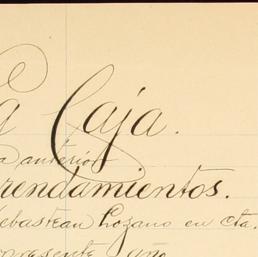 La Caja.
a anterior
rendamientos.
Sebastean Lozano en cta.
presente año